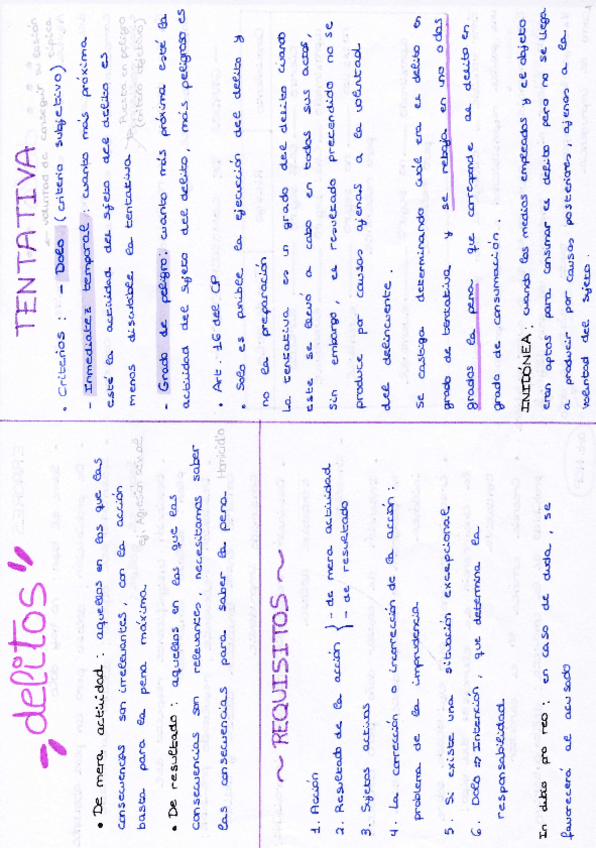 delitos
• De mera actividad : aquellos en los que las
consecuencias son irrelevantes, con la acción
basta para la pena máxima. ej: Agresión sexual
• De resultado : aquellos en los que las
consecuencias son relevantes, necesitamos saber
las consecuencias para saber la pena Homicidio
~ REQUISITOS ~
1. Acción
2. Resultado de la acción } - de mera actividad
- de resultado
3. Sujetos activos
4. La corrección o incorrección de la acción :
problema de la imprudencia
5. Si existe una situación excepcional
6. Dolo => Intención, que determina la
responsabilidad
In dubio pro reo : en caso de duda, se
favorecerá al acusado
TENTATIVA
• Criterios : - Dolo (criterio subjetivo)
voluntad de conseguir su acción típica
- Inmediatez temporal : cuanto más próxima
esté la actividad del sujeto del delito es
menos discutible la tentativa
Puesta en peligro
(criterio objetivo)
- Grado de peligro : cuanto más próxima esté la
actividad del sujeto del delito, más peligroso es
• Art. 16 del CP
• Solo es punible la ejecución del delito y
no la preparación
La tentativa es un grado del delito cuando
este se llevó a cabo en todos sus actos,
sin embargo, el resultado pretendido no se
produce por causas ajenas a la voluntad
del delincuente.
Se castiga determinando cuál era el delito en
grado de tentativa y se rebaja en uno o dos
grados la pena que corresponde al delito en
grado de consumación.
INIDÓNEA : cuando los medios empleados y el objeto
eran aptos para consumar el delito pero no se llega
a producir por causas posteriores, ajenas a la
voluntad del sujeto.